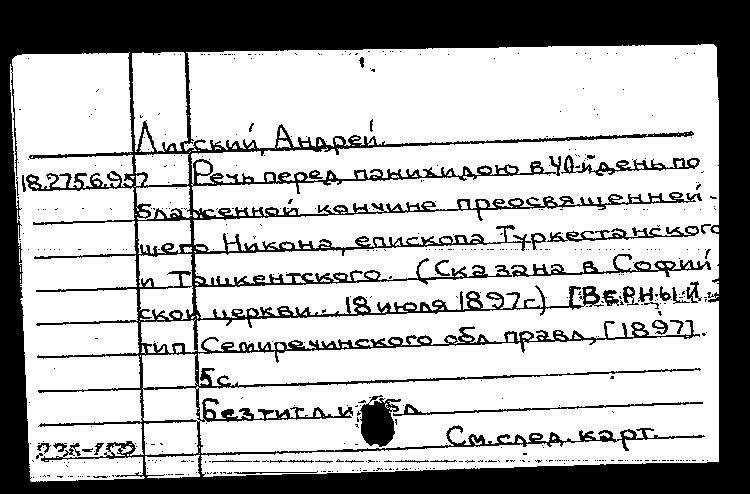 Лигский, Андрей.
18.2756.957 Речь перед панихидою в 40-й день по
блаженной кончине преосвященней-
шего Никона, епископа Туркестанского
и Ташкентского. (Сказана в Софий-
ской церкви... 18 июля 1897г) [Верный
тип Семиречинского обл правл, [1897].
5с.
Без титл. и обл
См. след. карт.
236-150